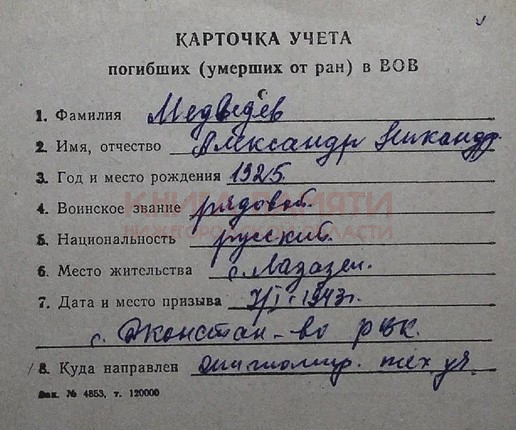 КАРТОЧКА УЧЕТА
погибших (умерших от ран) в ВОВ
1. Фамилия Медведев
2. Имя, отчество Александр Никандр
3. Год и место рождения 1925.
4. Воинское звание рядовой
5. Национальность русский.
6. Место жительства
7. Дата и место призыва 7/I-1943г.
с. Дконстан-во РВК.
8. Куда направлен тех уч.
Зак. № 4853, т. 120000
КНИГА ПАМЯТИ
НИЖЕГОРОДСКОЙ ОБЛАСТИ